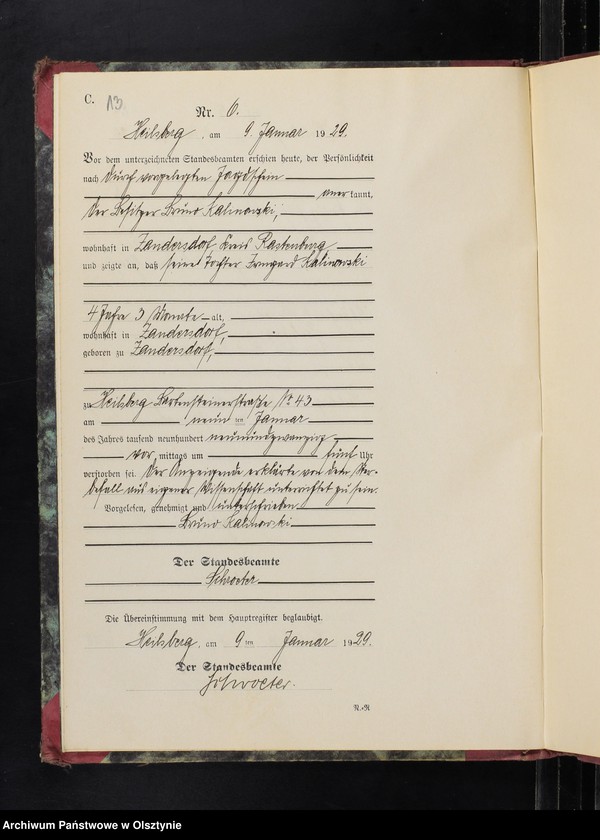 C. 13
Nr. 6.
Heilsberg, am 9. Januar 1929.
Vor dem unterzeichneten Standesbeamten erschien heute, der Persönlichkeit
nach durch vorgelegten Jagdschein
anerkannt,
der Besitzer Bruno Kalinowski,
wohnhaft in Zandersdorf Kreis Rastenburg
und zeigte an, daß seine Tochter Irmgard Kalinowski
4 Jahre 3 Monate alt,
wohnhaft in Zandersdorf,
geboren zu Zandersdorf,
zu Heilsberg Bartensteinerstraße № 43
am neunten Januar
des Jahres tausend neunhundert neunundzwanzig
vormittags um fünf Uhr
verstorben sei. Der Anzeigende erklärte von dem Ster-
befall aus eigener Wissenschaft unterrichtet zu sein.
Vorgelesen, genehmigt und unterschrieben
Bruno Kalinowski
Der Standesbeamte
Schroeter
Die Übereinstimmung mit dem Hauptregister beglaubigt.
Heilsberg, am 9ten Januar 1929.
Der Standesbeamte
Schroeter.
R.-R
Archiwum Państwowe w Olsztynie